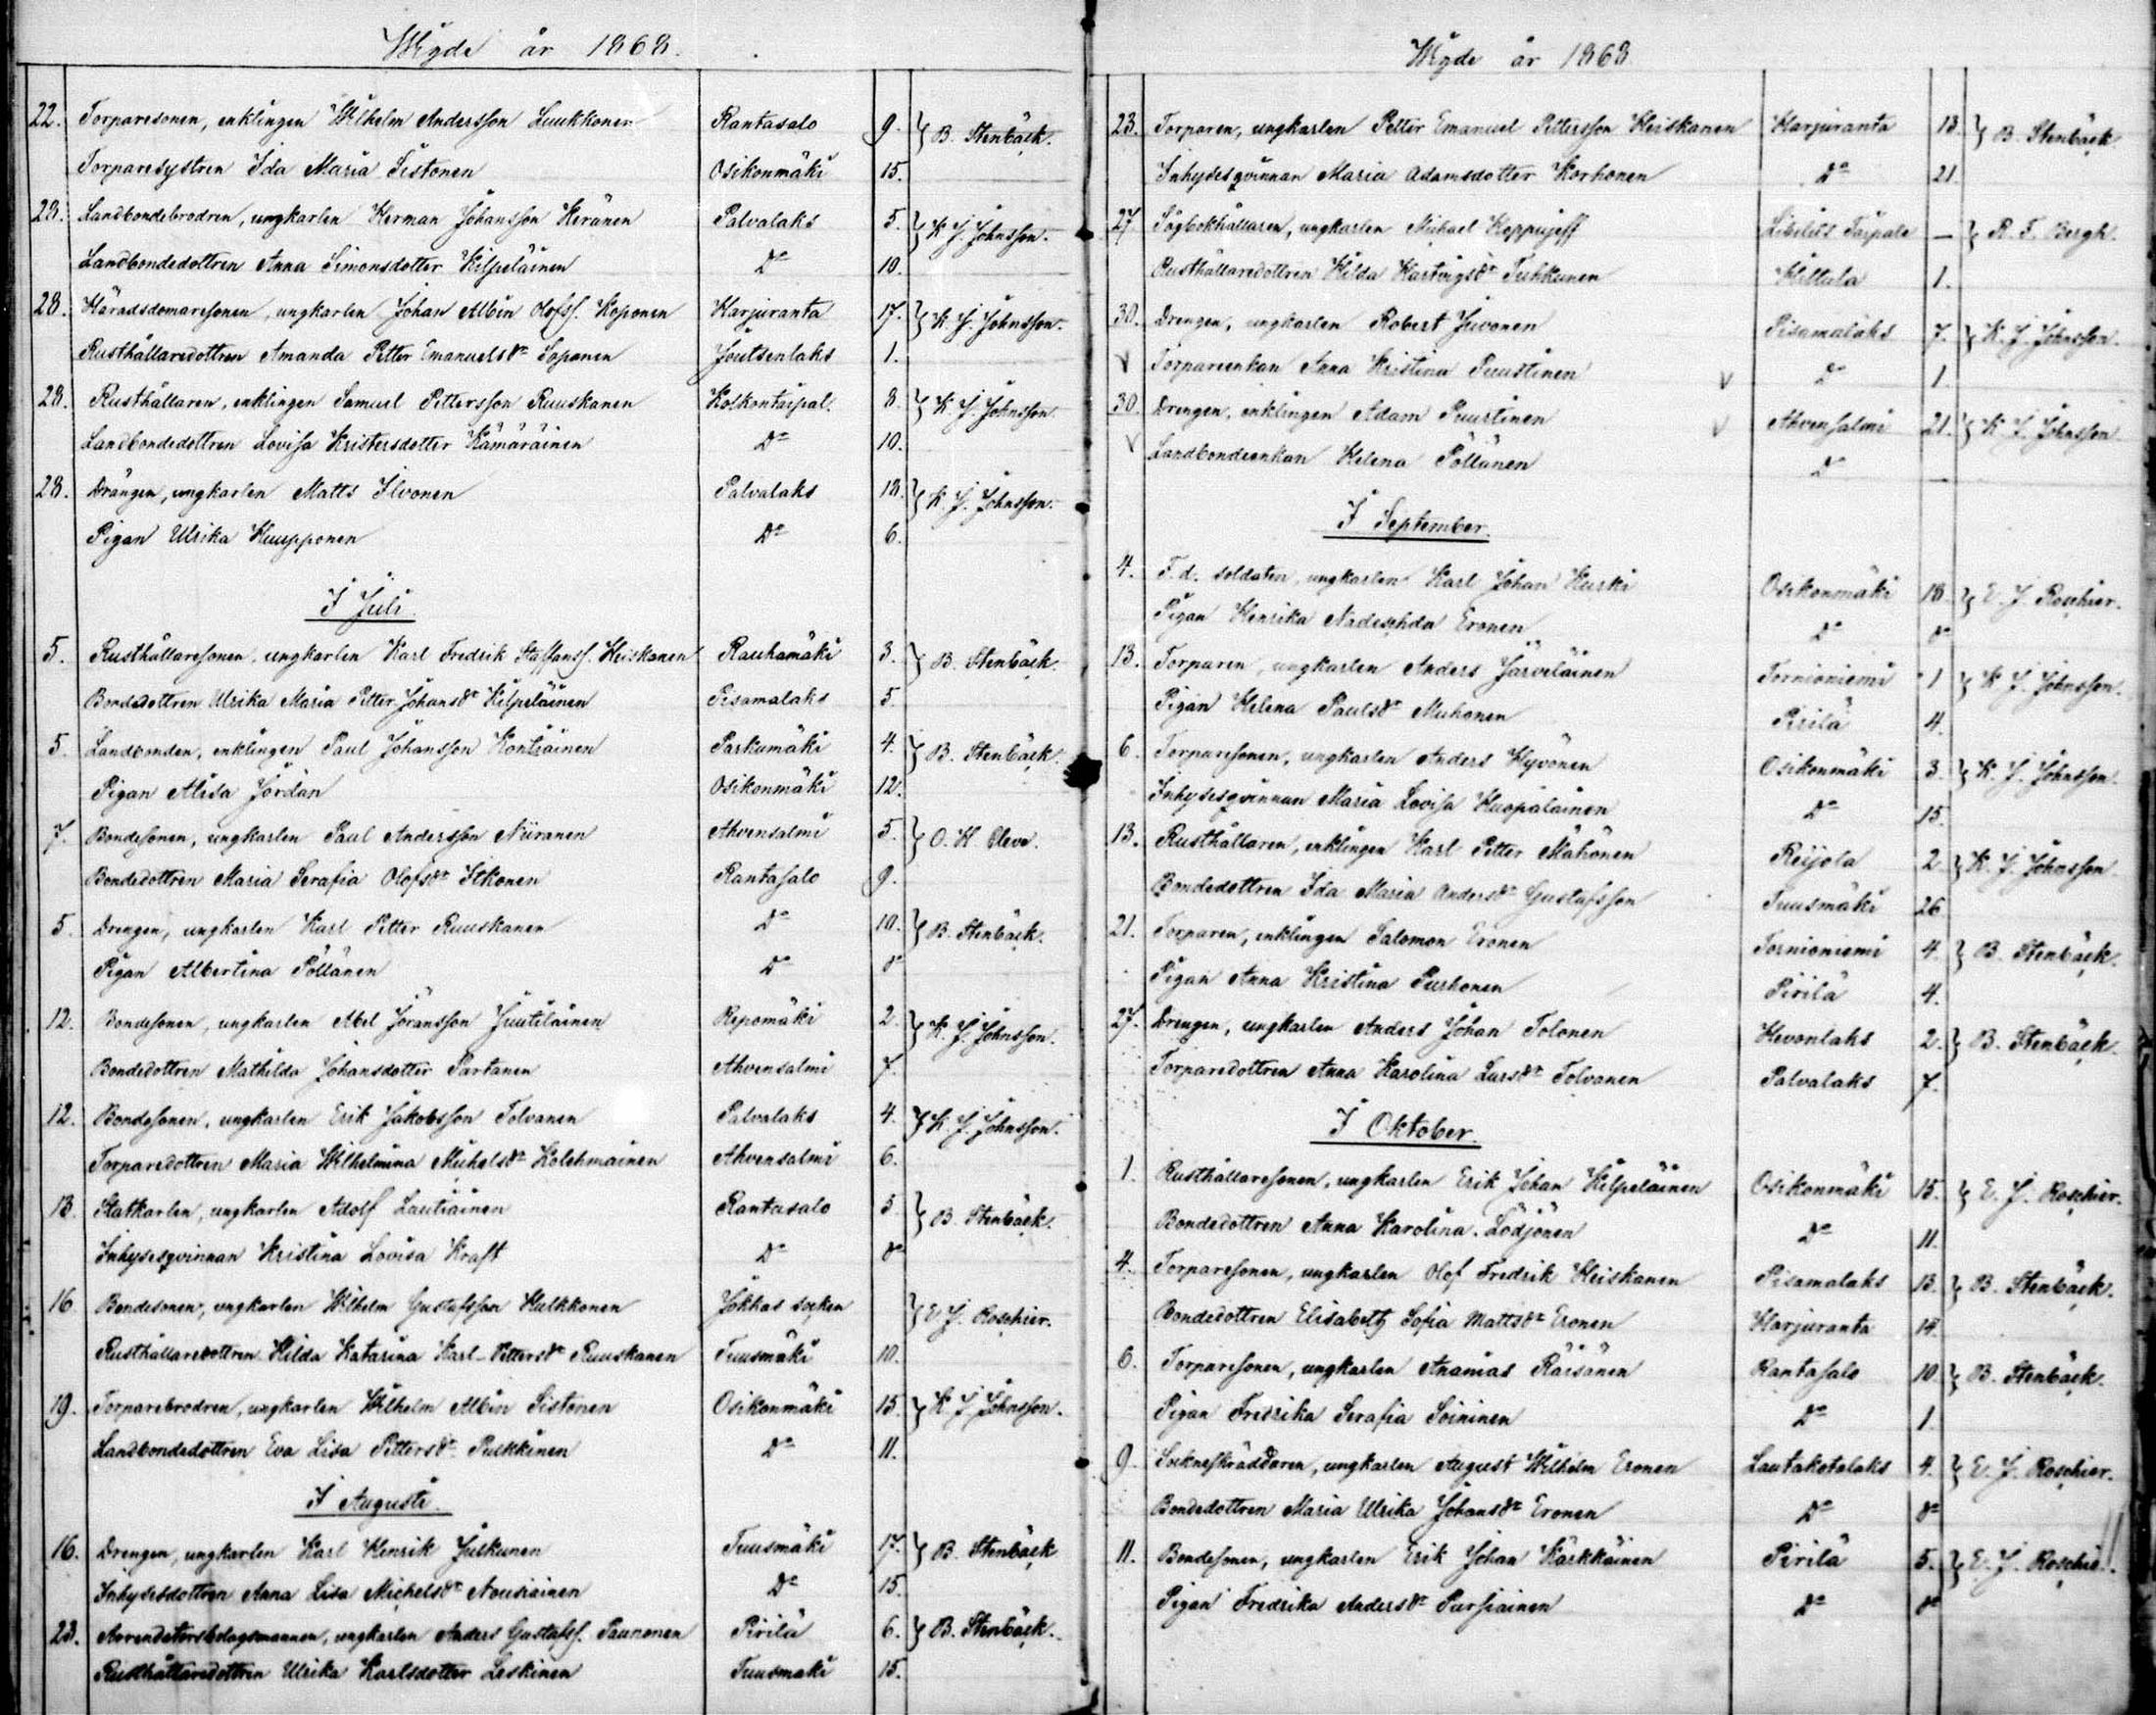 Wigde år 1868.
22. Torparesonen, enklingen Wilhelm Andersson Luukkonen Rantasalo 9. } B. Stenbäck.
Torparesystren Ida Maria Sistonen Osikonmäki 15.
28. Landbondebrodren, ungkarlen Herman Johansson Keränen Palvalaks 5. } K. J. Johnsson.
Landbondedottren Anna Simonsdotter Kilpeläinen Do 10.
28. Häradsdomaresonen, ungkarlen Johan Albin Olofss. Koponen Harjuranta 17. } K. J. Johnsson.
Rusthållaredottren Amanda Petter Emanuelsdr Soponen Joutsenlaks 1.
28. Rusthållaren, enklingen Samuel Pettersson Ruuskanen Kolkontaipal. 8. } K. J. Johnsson.
Landbondedottren Lovisa Kristersdotter Kämäräinen Do 10.
28. Drängen, ungkarlen Matts Ilvonen Palvalaks 18. } K. J. Johnsson.
Pigan Ulrika Huupponen Do 6.
I Juli.
5. Rusthållaresonen, ungkarlen Karl Fredrik Staffanss. Heiskanen Rauhamäki 3. } B. Stenbäck.
Bondedottren Ulrika Maria Petter Johansdr Kilpeläinen Pisamalaks 5
5. Landbonden, enklingen Paul Johansson Kontiainen Parkumäki 4. } B. Stenbäck.
Pigan Alisa Jordan Osikonmäki 12.
7. Bondesonen, ungkarlen Paul Andersson Niiranen Ahvensalmi 5. } O. H. Cleve.
Bondedottren Maria Serafia Olofsdr Itkonen Rantasalo 9.
5. Drengen, ungkarlen Karl Petter Ruuskanen Do 10. } B. Stenbäck.
Pigan Albertina Pöllänen Do do
12. Bondesonen, ungkarlen Abel Göransson Juutilainen Repomäki 2. } K. J. Johnsson.
Bondedottren Mathilda Johansdotter Partanen Ahvensalmi 7
12. Bondesonen, ungkarlen Erik Jakobsson Tolvanen Palvalaks 4. } K. J. Johnsson.
Torparedottren Maria Wilhelmina Michelsdr Kolehmainen Ahvensalmi 6.
13. Statkarlen, ungkarlen Adolf Lautiainen Rantasalo 5 } B. Stenbäck.
Inhysesqvinnan Kristina Lovisa Kraft Do do
16 Bondesonen, ungkarlen Wilhelm Gustafsson Kulkkonen Jokkas socken } E. J. Roschier.
Rusthållaredottren Hilda Katarina Karl-Pettersdr Ruuskanen Tuusmäki 10.
19. Torparebrodren, ungkarlen Wilhelm Albin Sistonen Osikonmäki 15. } K. J. Johnsson.
Landbondedottren Eva Lisa Pettersdr Pulkkinen Do 11.
I Augusti.
16. Drengen, ungkarlen Karl Henrik Julkunen Tuusmäki 17. } B. Stenbäck
Inhysesdottren Anna Lisa Michelsdr Nousiainen Do 15.
23. Arrendatorsbolagsmannen, ungkarlen Anders Gustafss. Paunonen Pirilä 6. } B. Stenbäck.
Rusthållaredottren Ulrika Karlsdotter Leskinen Tuusmäki 15.
Wigde år 1868
23. Torparen, ungkarlen Petter Emanuel Pettersson Heiskanen Harjuranta 13. } B. Stenbäck.
Inhysesqvinnan Maria Adamsdotter Korhonen Do 21.
27 Sågbokhållaren, ungkarlen Michael Koppujeff Taipale — } R. F. Bergh.
Rusthållaredottren Hilda Hartvigsdr Tuhkunen Kiltula 1.
30. Drengen, ungkarlen Robert Juvonen Pisamalaks 7. } K. J. Johnsson.
v Torpareenkan Anna Kristina Puustinen v Do 1.
30. Drengen, enklingen Adam Puustinen v Ahvensalmi 21. } K. J. Johnsson
v Landbondeenkan Helena Pöllänen Do —
I September.
4. F. d. soldaten, ungkarlen Karl Johan Kurki Osikonmäki 18. } E. J. Roschier.
Pigan Henrika Nadeschda Eronen Do do
13. Torparen, ungkarlen Anders Järveläinen Tornioniemi 1 } K. J. Johnsson.
Pigan Helena Paulsdr Muhonen Pirilä 4.
6. Torparesonen, ungkarlen Anders Hyvönen Osikonmäki 3. } K. J. Johnsson.
Inhysesqvinnan Maria Lovisa Kuopalainen Do 15.
13. Rusthållaren, enklingen Karl Petter Mähönen Reijola 2 } K. J. Johnsson.
Bondedottren Ida Maria Andersdr Gustafsson Tuusmäki 26
21. Torparen, enklingen Salomon Eronen Tornioniemi 4. } B. Stenbäck.
Pigan Anna Kristina Purhonen Pirilä 4.
27. Drengen, ungkarlen Anders Johan Tolonen Hevonlaks 2. } B. Stenbäck.
Torparedottren Anna Karolina Larsdr Tolvanen Palvalaks 7.
I Oktober.
1. Rusthållaresonen, ungkarlen Erik Johan Kilpeläinen Osikonmäki 15. } E. J. Roschier.
Bondedottren Anna Karolina Lödjönen Do 11.
4. Torparesonen, ungkarlen Olof Fredrik Heiskanen Pisamalaks 13. } B. Stenbäck.
Bondedottren Elisabeth Sofia Mattsdr Eronen Harjuranta 14.
6. Torparesonen, ungkarlen Ananias Räisänen Rantasalo 10. } B. Stenbäck.
Pigan Fredrika Serafia Soininen Do 1.
9. Sockneskräddaren, ungkarlen August Wilhelm Eronen Lautakotalaks 4. } E. J. Roschier.
Bondedottren Maria Ulrika Johansdr Eronen Do do
11. Bondesonen, ungkarlen Erik Johan Kärkkäinen Pirilä 5. } E. J. Roschier.
Pigan Fredrika Andersdr Pursiainen Do do